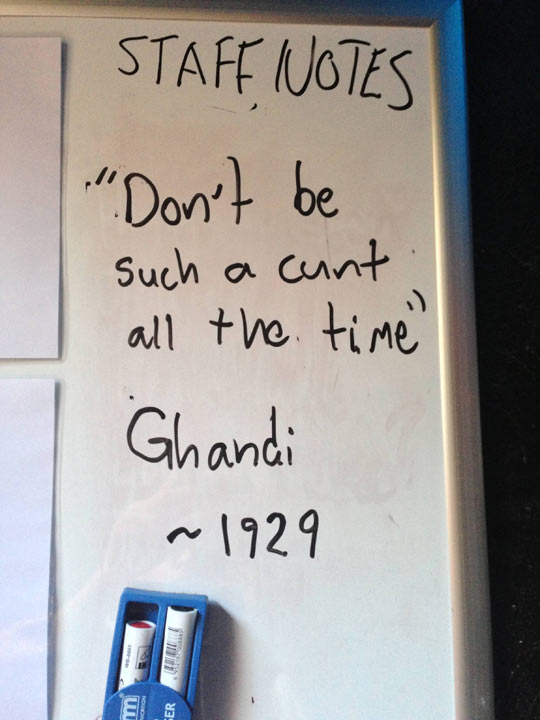 STAFF NOTES
"Don't be
such a cunt
all the time"
Ghandi
~ 1929